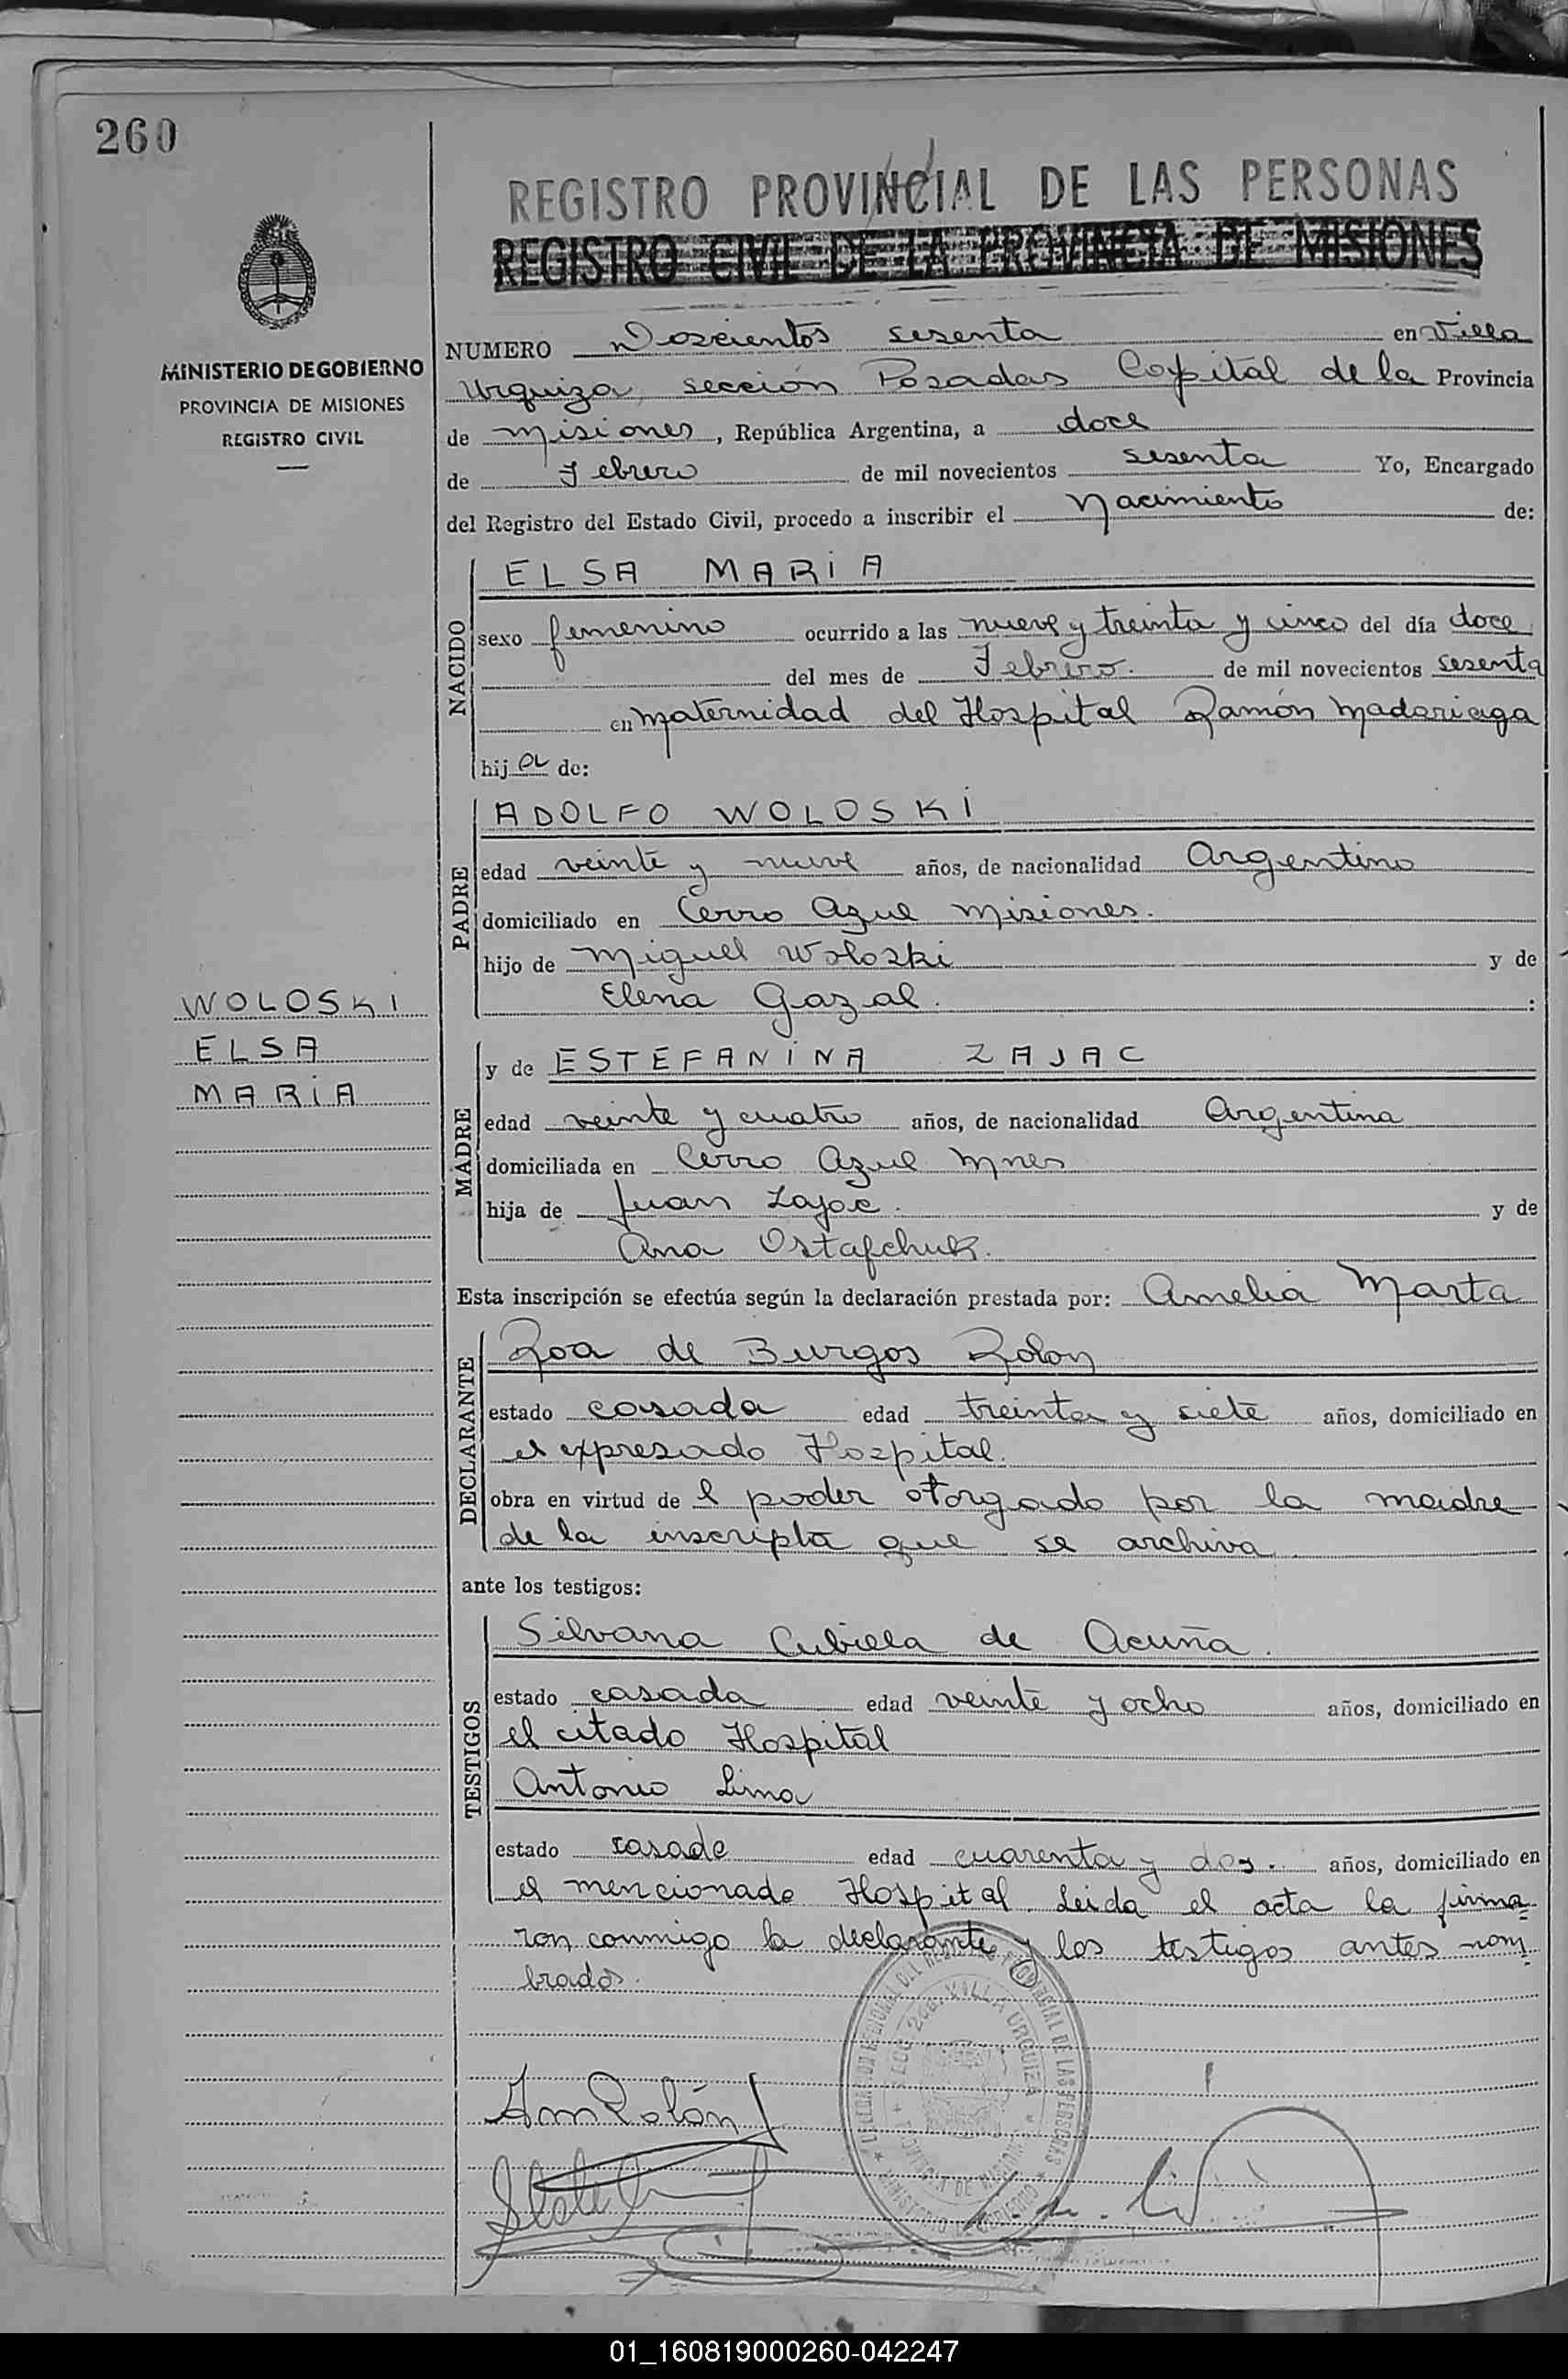 260
REGISTRO PROVINCIAL DE LAS PERSONAS
REGISTRO CIVIL DE LA PROVINCIA DE MISIONES
MINISTERIO DE GOBIERNO
PROVINCIA DE MISIONES
REGISTRO CIVIL
NUMERO Doscientos sesenta en Villa
Urquiza, sección Posadas Capital de la Provincia
de Misiones, República Argentina, a doce
de Febrero de mil novecientos sesenta Yo, Encargado
del Registro del Estado Civil, procedo a inscribir el Nacimiento de:
NACIDO
ELSA MARIA
sexo femenino ocurrido a las nueve y treinta y cinco del día doce
del mes de Febrero. de mil novecientos sesenta
en Maternidad del Hospital Ramón Madariaga
hija de:
PADRE
ADOLFO WOLOSKI
edad veinte y nueve años, de nacionalidad Argentino
domiciliado en Cerro Azul Misiones.
hijo de Miguel Woloski y de
Elena Gazal. :
WOLOSKI
ELSA
MARIA
MADRE
y de ESTEFANINA ZAJAC
edad veinte y cuatro años, de nacionalidad Argentina
domiciliada en Cerro Azul Mnes
hija de Juan Zajac. y de
Ana Ostafchuk.
Esta inscripción se efectúa según la declaración prestada por: Amelia Marta
DECLARANTE
Roa de Burgos Rolon
estado casada edad treinta y siete años, domiciliado en
el expresado Hospital.
obra en virtud de l poder otorgado por la madre
de la inscripta que se archiva
ante los testigos:
TESTIGOS
Silvana Cubiela de Acuña.
estado casada edad veinte y ocho años, domiciliado en
el citado Hospital
Antonio Lima
estado casado edad cuarenta y dos. años, domiciliado en
el mencionado Hospital. Leida el acta la firma
ron conmigo la declarante y los testigos antes nom
brados.
VILLA URQUIZA
01_160819000260-042247